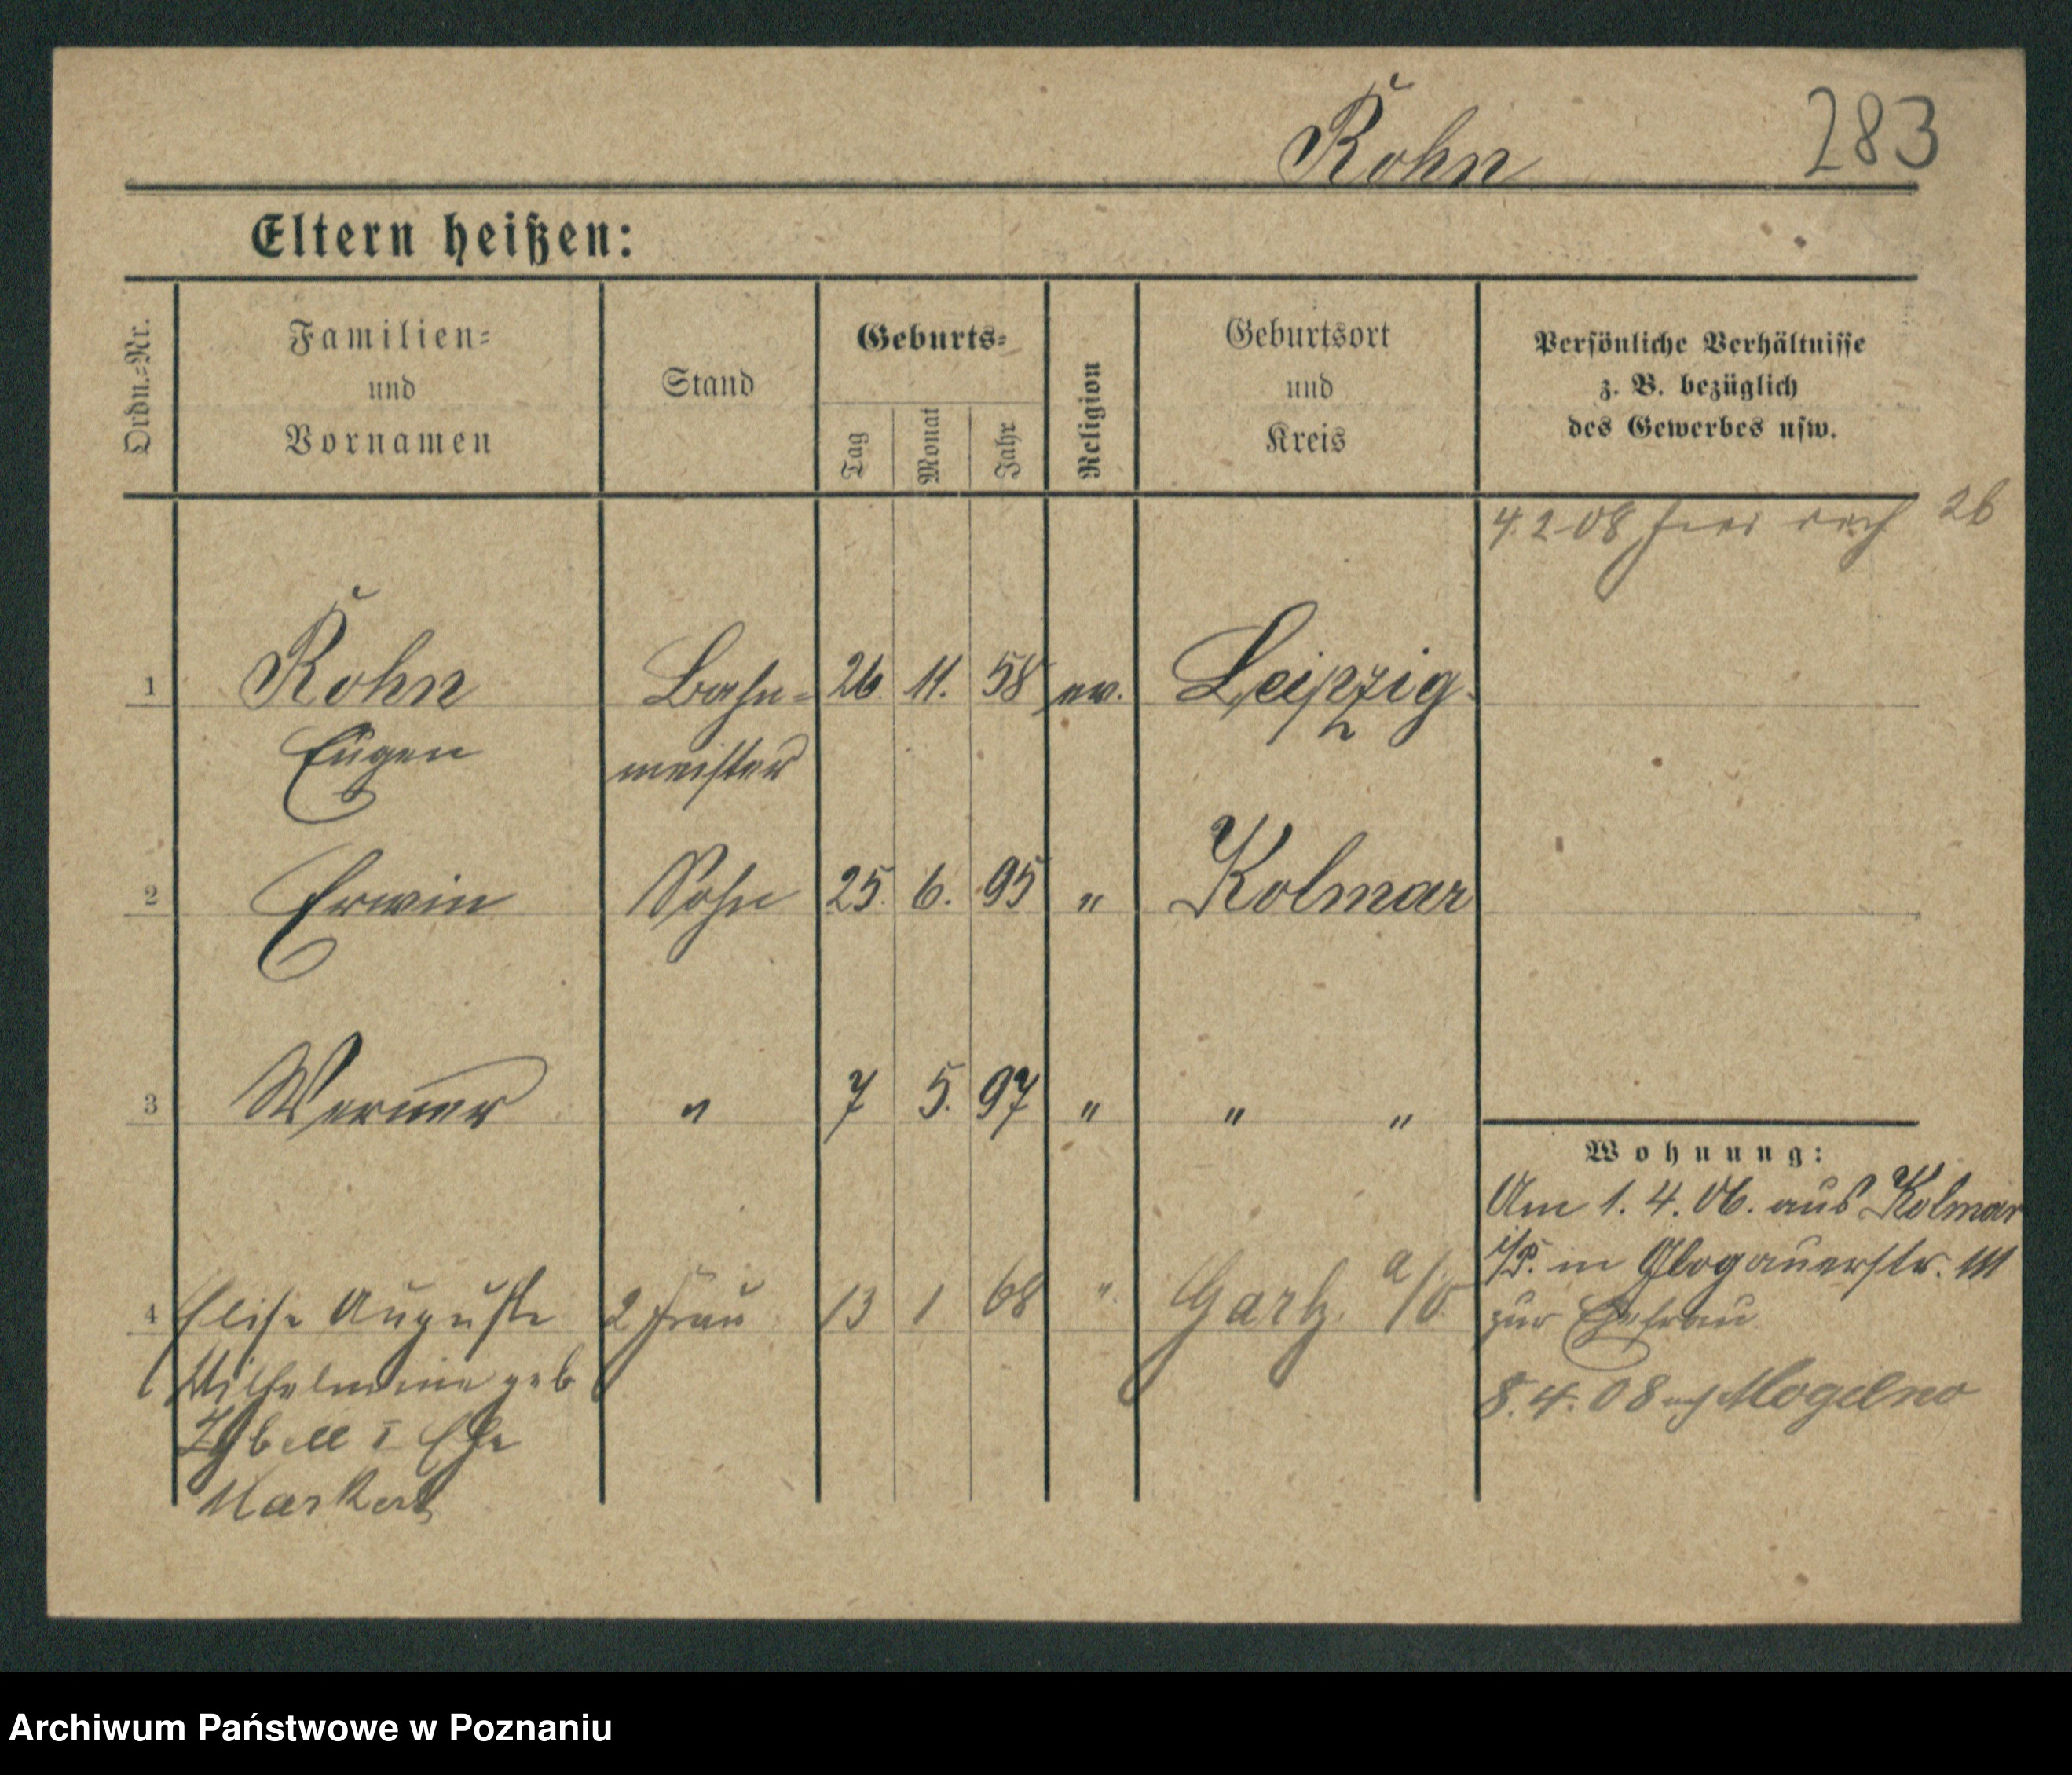 Rohn
283
Eltern heißen:
Ordn.-Nr.
Familien-
und
Vornamen
Stand
Geburts-
Tag
Monat
Jahr
Religion
Geburtsort
und
Kreis
Persönliche Verhältnisse
z. B. bezüglich
des Gewerbes usw.
4.2.08 26
1 Rohn Bahn- 26. 11. 58 ev. Leipzig
Eugen meister
2 Erwin Sohn 25. 6. 95 " Kolmar
3 Werner " 7 5. 97 " " "
Wohnung:
Am 1. 4. 06. aus Kolmar
i/P. in Glogauerstr. 111
zur Ehefrau
8. 4. 08 Mogilno
4 Elise Auguste 2 Frau 13 1 68 " Gartz a/O
Wilhelmine geb
Zybell I Ehe
Markert
Archiwum Państwowe w Poznaniu